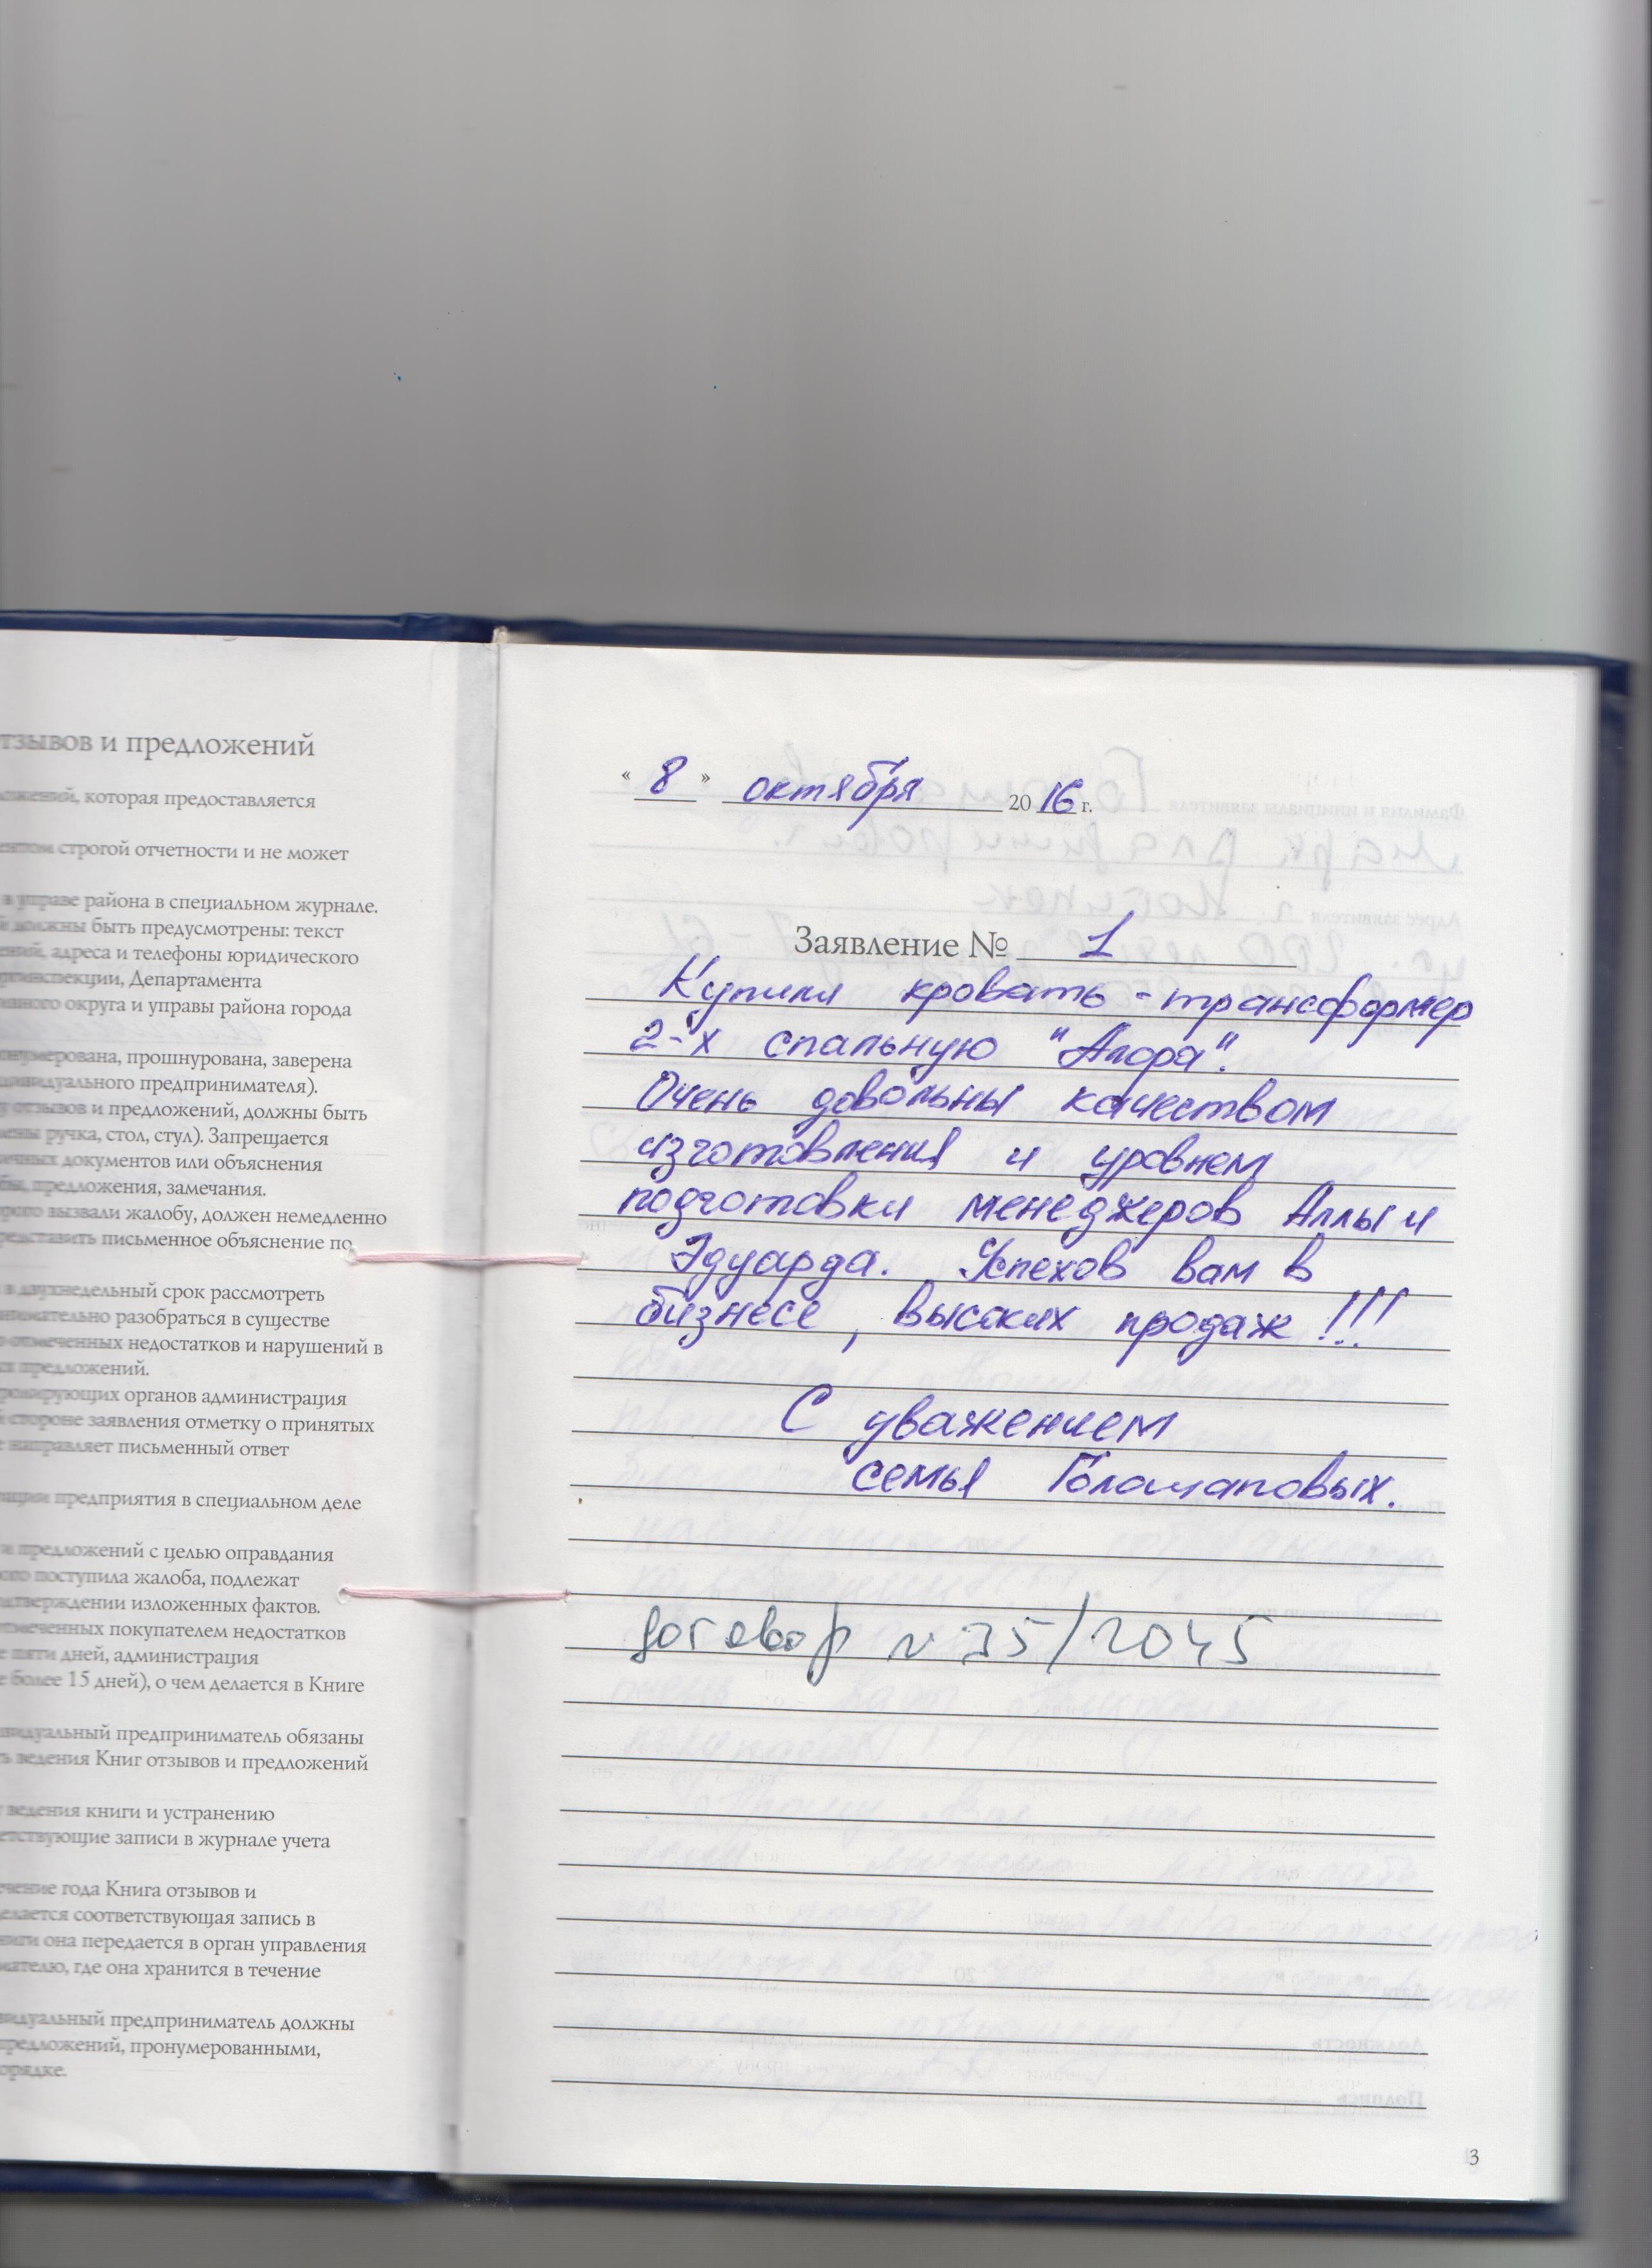 отзывов и предложений
которая предоставляется
строгой отчетности и не может
в управе района в специальном журнале.
должны быть предусмотрены: текст
адреса и телефоны юридического
Департамента
округа и управы района города
прошнурована, заверена
предпринимателя).
отзывов и предложений, должны быть
ручка, стол, стул). Запрещается
документов или объяснения
предложения, замечания.
вызвали жалобу, должен немедленно
представить письменное объяснение по
в двухнедельный срок рассмотреть
внимательно разобраться в существе
отмеченных недостатков и нарушений в
предложений.
органов администрация
стороне заявления отметку о принятых
направляет письменный ответ
предприятия в специальном деле
и предложений с целью оправдания
поступила жалоба, подлежат
подтверждении изложенных фактов.
отмеченных покупателем недостатков
пяти дней, администрация
более 15 дней), о чем делается в Книге
предприниматель обязаны
ведения Книг отзывов и предложений
ведения книги и устранению
соответствующие записи в журнале учета
течение года Книга отзывов и
делается соответствующая запись в
она передается в орган управления
где она хранится в течение
предприниматель должны
предложений, пронумерованными,
порядке.
« 8 » октября 20 16 г.
Заявление № 1
Купили кровать - трансформер
2-х спальную "Алора".
Очень довольны качеством
изготовления и уровнем
подготовки менеджеров Аллы и
Эдуарда. Успехов вам в
бизнесе, высоких продаж!!!
С уважением
семья Голошаповых.
договор № 35/2045
3